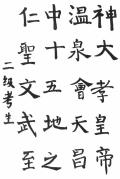 神大孝皇帝
溫泉會天昌
中十五地之
仁聖文武至
二級考生